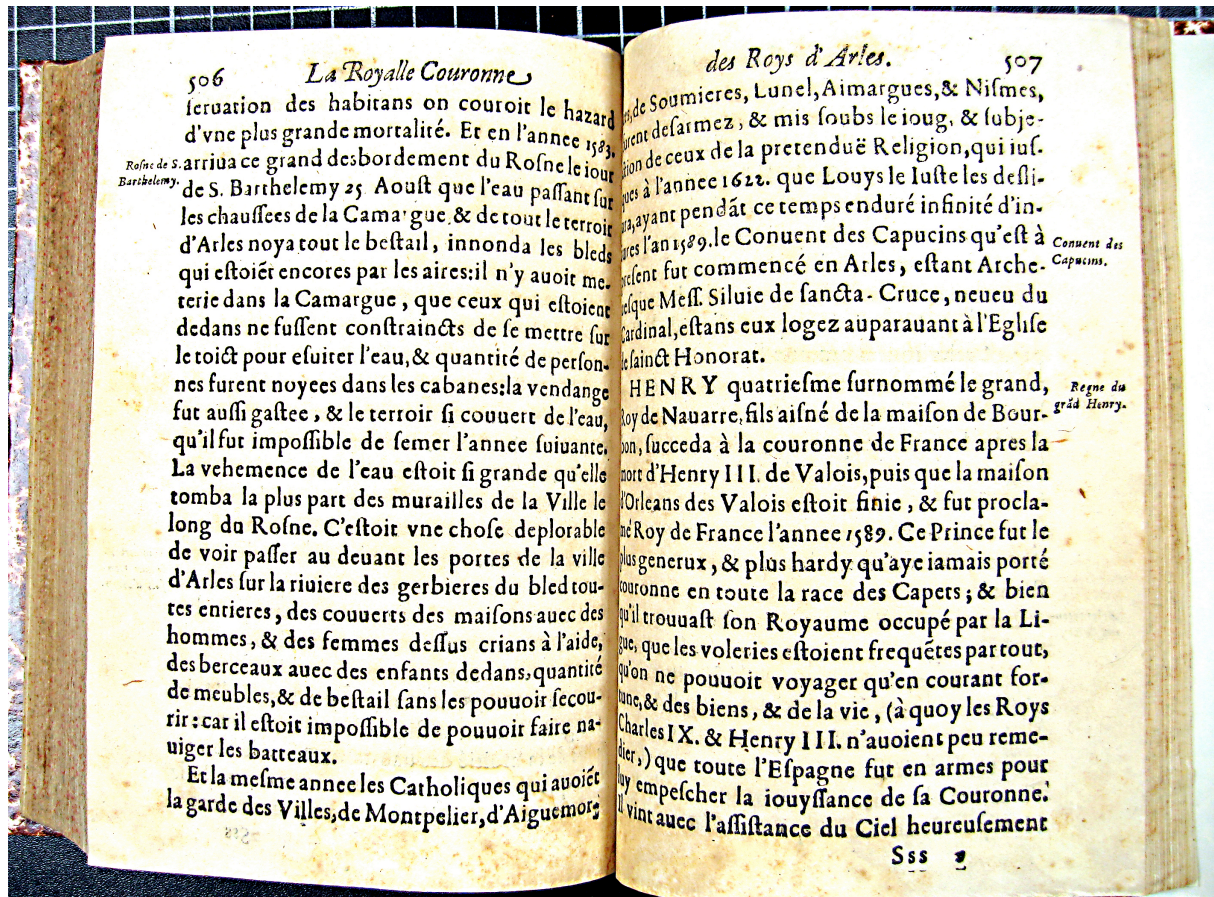 506 La Royalle Couronne
ſeruation des habitans on couroit le hazard
d'vne plus grande mortalité. Et en l'annee 1583.
Roſne de S. arriua ce grand desbordement du Roſne le iour
Barthelemy. de S. Barthelemy 25 Aouſt que l'eau paſſant ſur
les chauſſees de la Camargue & de tout le terroir
d'Arles noya tout le beſtail, innonda les bleds
qui eſtoiẽt encores par les aires:il n'y auoit me-
terie dans la Camargue, que ceux qui eſtoient
dedans ne fuſſent conſtraincts de ſe mettre ſur
le toict pour eſuiter l'eau, & quantité de perſon-
nes furent noyees dans les cabanes:la vendange
fut auſſi gaſtee, & le terroir ſi couuert de l'eau,
qu'il fut impoſſible de ſemer l'annee ſuiuante.
La vehemence de l'eau eſtoit ſi grande qu'elle
tomba la plus part des murailles de la Ville le
long du Roſne. C'eſtoit vne choſe deplorable
de voir paſſer au deuant les portes de la ville
d'Arles ſur la riuiere des gerbieres du bled tou-
tes entieres, des couuerts des maiſons auec des
hommes, & des femmes deſſus crians à l'aide,
des berceaux auec des enfants dedans, quantité
de meubles, & de beſtail ſans les pouuoir ſecou-
rir : car il eſtoit impoſſible de pouuoir faire na-
uiger les batteaux.
Et la meſme annee les Catholiques qui auoiẽt
la garde des Villes, de Montpelier, d'Aiguemor-
des Roys d'Arles. 507
de Soumieres, Lunel, Aimargues, & Niſmes,
furent deſarmez, & mis ſoubs le ioug, & ſubje-
ction de ceux de la pretenduë Religion, qui iuſ-
ques à l'annee 1622. que Louys le Iuſte les deſli-
ura, ayant pendãt ce temps enduré infinité d'in-
iures l'an 1589. le Conuent des Capucins qu'eſt à
preſent fut commencé en Arles, eſtant Arche-
ueſque Meſſ. Siluie de ſancta-Cruce, neueu du
Cardinal, eſtans eux logez auparauant à l'Egliſe
de ſainct Honorat.
Conuent des
Capucins.
HENRY quatrieſme ſurnommé le grand,
Roy de Nauarre, fils aiſné de la maiſon de Bour-
bon, ſucceda à la couronne de France apres la
mort d'Henry III. de Valois, puis que la maiſon
d'Orleans des Valois eſtoit finie, & fut procla-
mé Roy de France l'annee 1589. Ce Prince fut le
plus generux, & plus hardy qu'aye iamais porté
couronne en toute la race des Capets; & bien
qu'il trouuaſt ſon Royaume occupé par la Li-
gue, que les voleries eſtoient frequẽtes par tout,
qu'on ne pouuoit voyager qu'en courant for-
tune, & des biens, & de la vie, (à quoy les Roys
Charles IX. & Henry III. n'auoient peu reme-
dier,) que toute l'Eſpagne fut en armes pour
luy empeſcher la iouyſſance de ſa Couronne.
Il vint auec l'aſſiſtance du Ciel heureuſement
Regne du
grãd Henry.
Sss 2